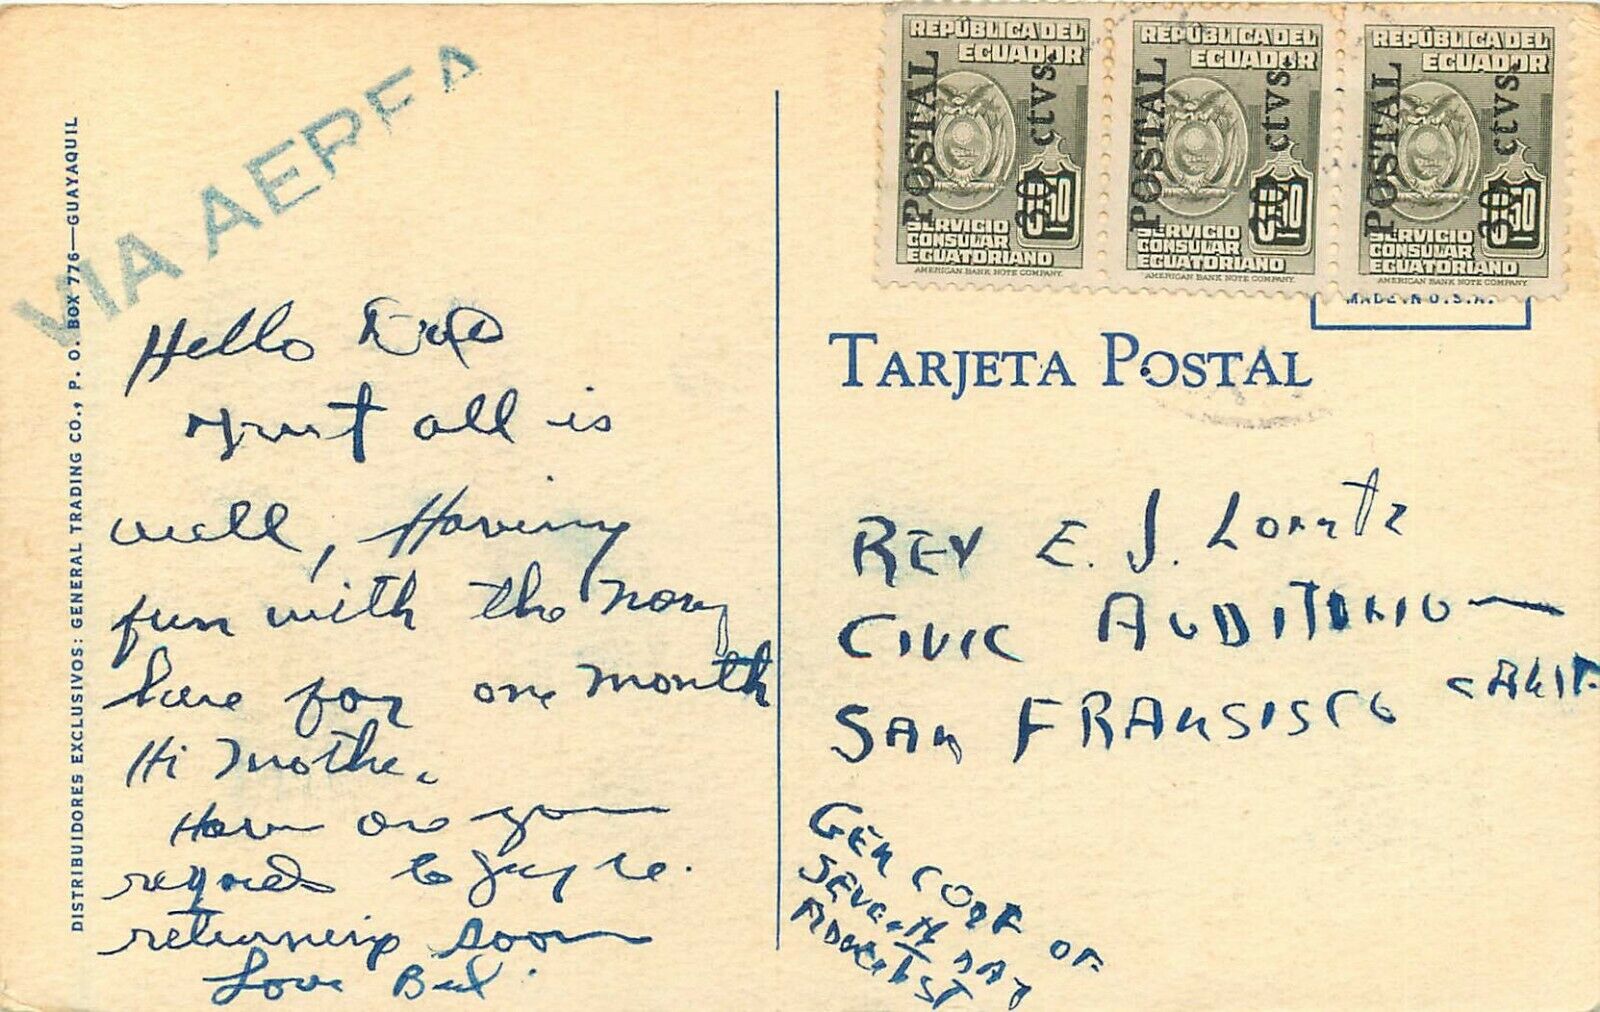 VIA AEREA
DISTRIBUIDORES EXCLUSIVOS: GENERAL TRADING CO., P. O. BOX 776—GUAYAQUIL
Hello
trust all is
well, Having
fun with the Navy
here for one month
Hi Mother.
How are you
regards to
returning soon
Love Bud
REPÚBLICA DEL
ECUADOR
POSTAL
30 ctvs.
SERVICIO
CONSULAR
ECUATORIANO
AMERICAN BANK NOTE COMPANY.
REPÚBLICA DEL
ECUADOR
POSTAL
30 ctvs.
SERVICIO
CONSULAR
ECUATORIANO
AMERICAN BANK NOTE COMPANY.
REPÚBLICA DEL
ECUADOR
POSTAL
30 ctvs.
SERVICIO
CONSULAR
ECUATORIANO
AMERICAN BANK NOTE COMPANY.
MADE IN U.S.A.
TARJETA POSTAL
REV E. J. Lorntz
CIVIC AUDITORIO
SAN FRANSISCO CALIF.
GEN CONF OF
SEVENTH DAY
ADVENTIST